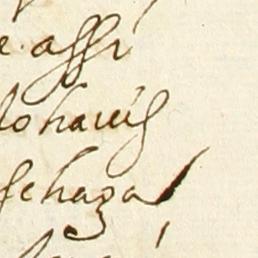 e assi
lo haueis
se haga